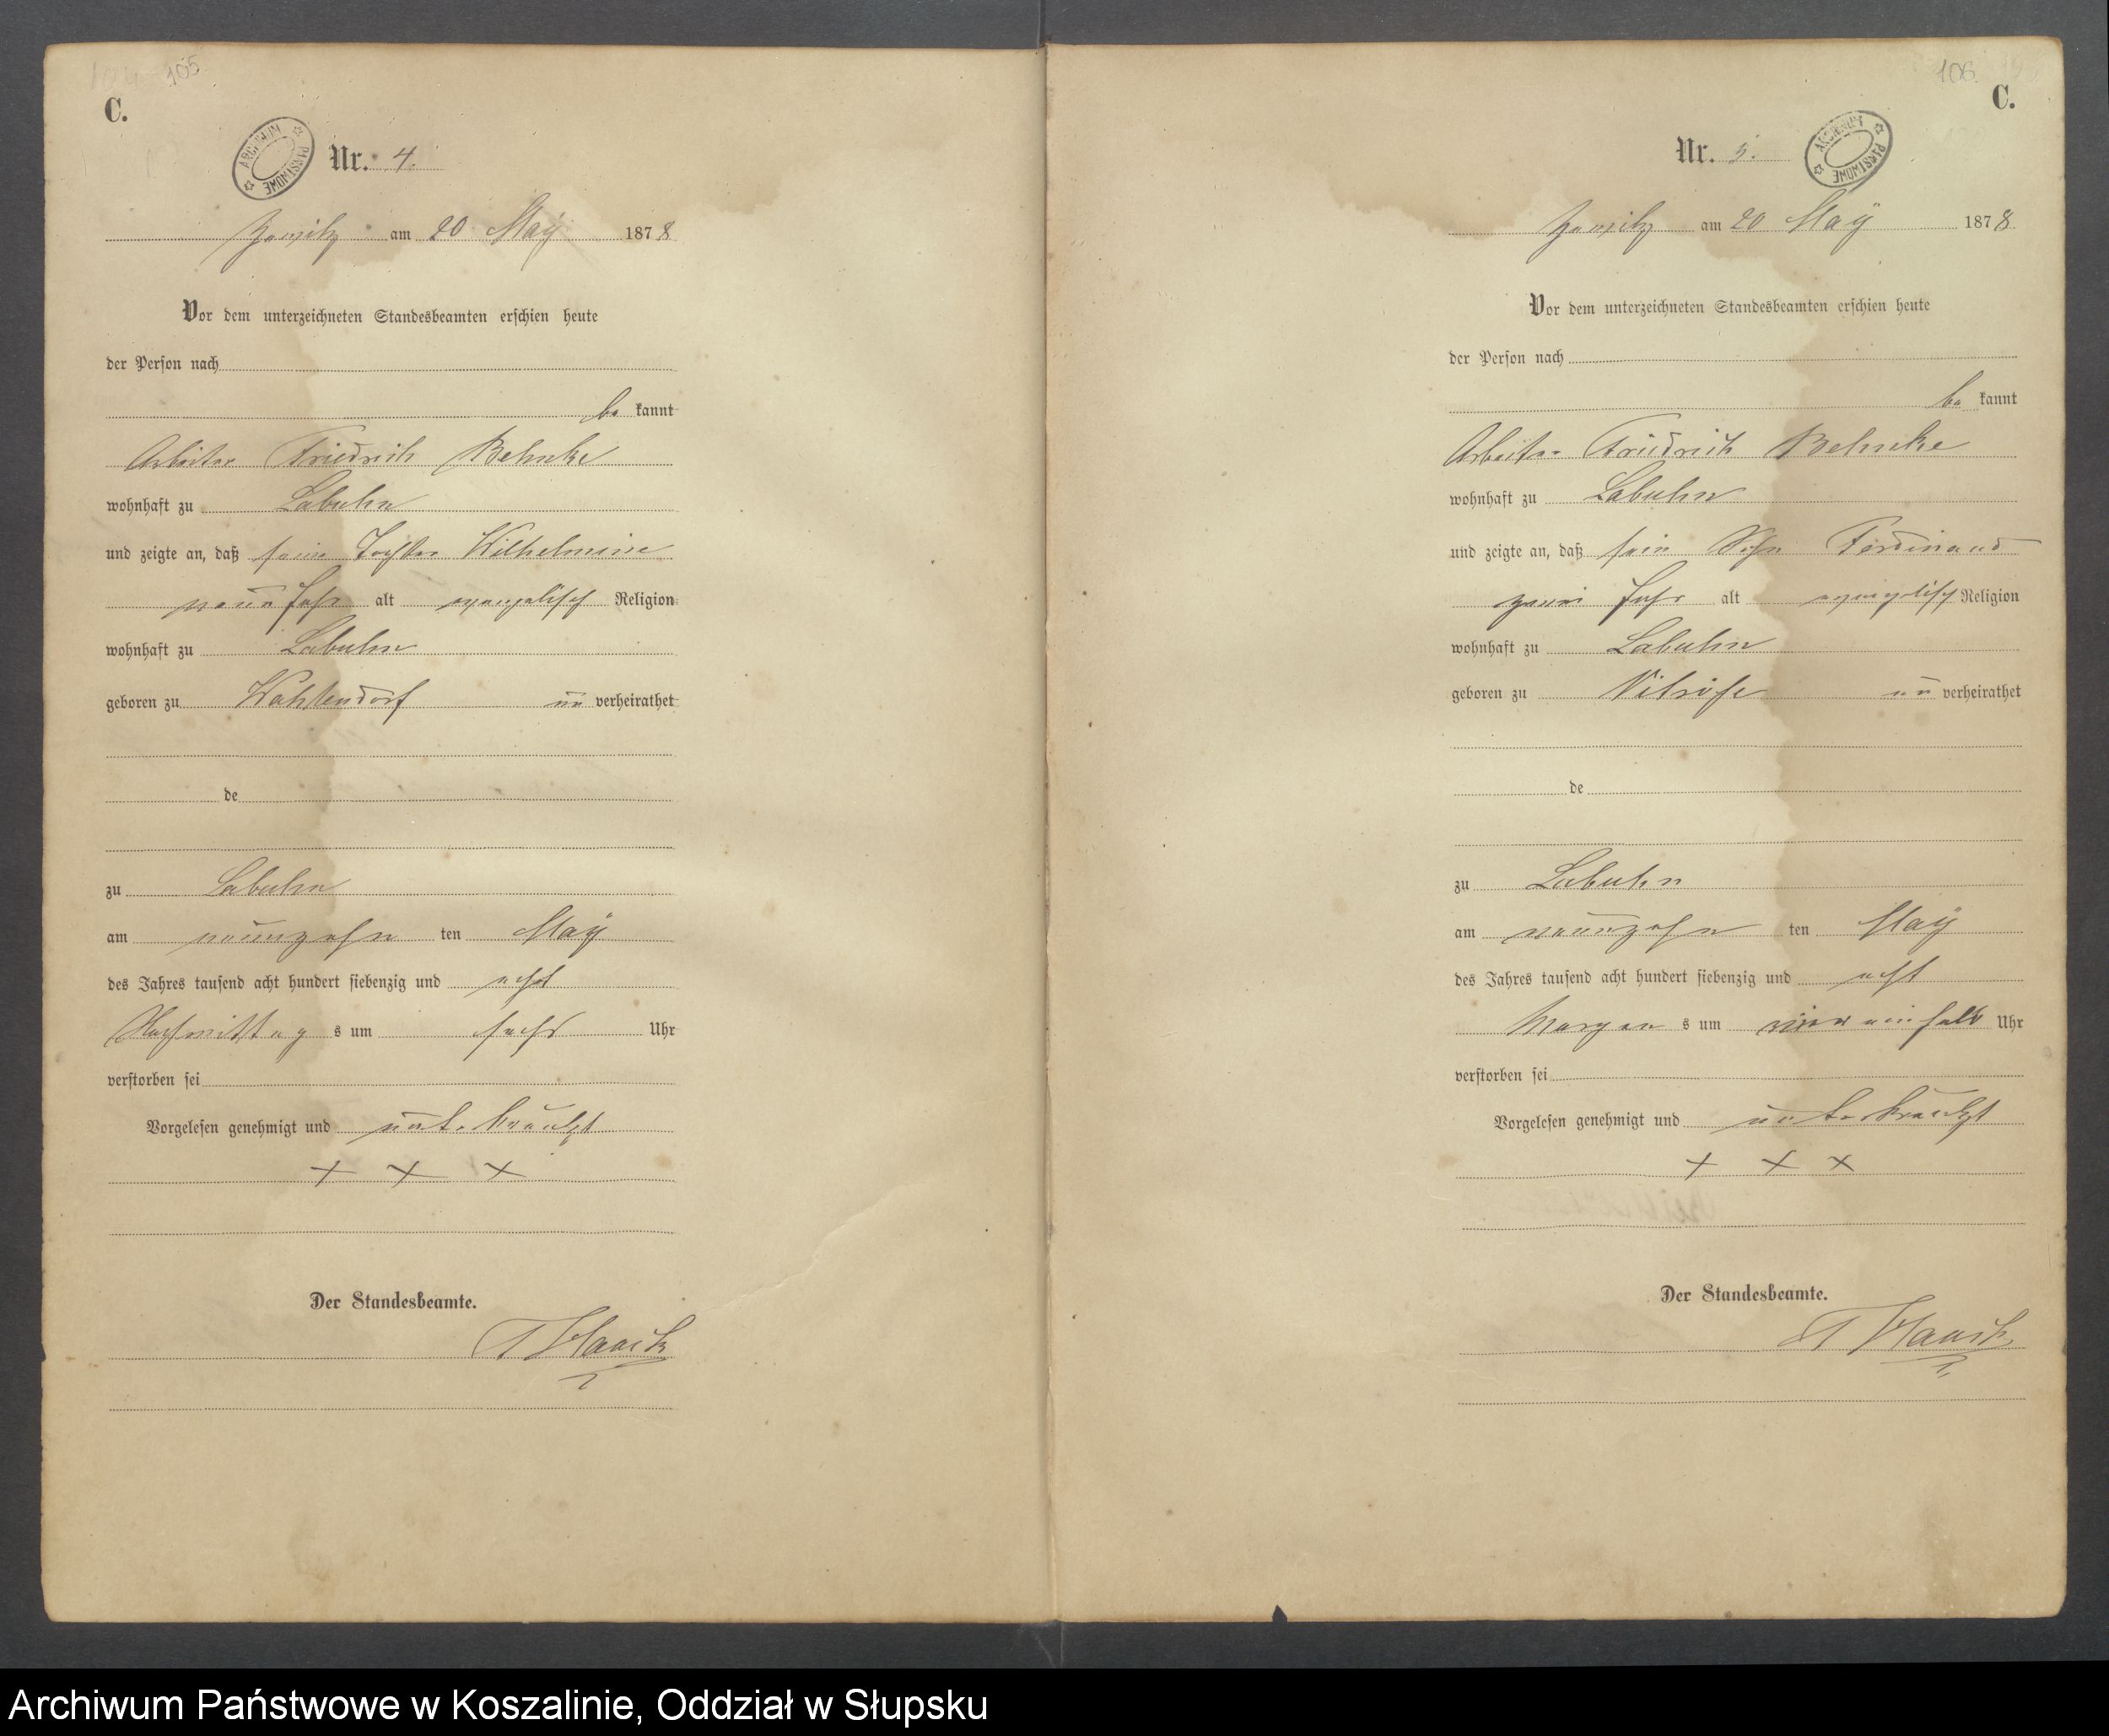 105
C.
Nr. 4.
ARCHIWUM PAŃSTWOWE
Zewitz am 20 Maÿ 1878
Vor dem unterzeichneten Standesbeamten erschien heute
der Person nach
be kannt
Arbeiter Friedrich Behnke
wohnhaft zu Labuhn
und zeigte an, daß seine Tochter Wilhelmine
neun Jahr alt evangelisch Religion
wohnhaft zu Labuhn
geboren zu Wahlendorf un verheirathet
de
zu Labuhn
am neunzehn ten Maÿ
des Jahres tausend acht hundert siebenzig und acht
Nachmittag s um sechs Uhr
verstorben sei
Vorgelesen genehmigt und unterkreuzt
+ + +
Der Standesbeamte.
Haack
106
C.
Nr. 5.
ARCHIWUM PAŃSTWOWE
Zewitz am 20 Maÿ 1878
Vor dem unterzeichneten Standesbeamten erschien heute
der Person nach
be kannt
Arbeiter Friedrich Behnke
wohnhaft zu Labuhn
und zeigte an, daß sein Sohn Ferdinand
zwei Jahr alt evangelisch Religion
wohnhaft zu Labuhn
geboren zu un verheirathet
de
zu Labuhn
am neunzehn ten Maÿ
des Jahres tausend acht hundert siebenzig und acht
Morgen s um vier einhalb Uhr
verstorben sei
Vorgelesen genehmigt und unterkreuzt
+ + +
Der Standesbeamte.
Haack
Archiwum Państwowe w Koszalinie, Oddział w Słupsku